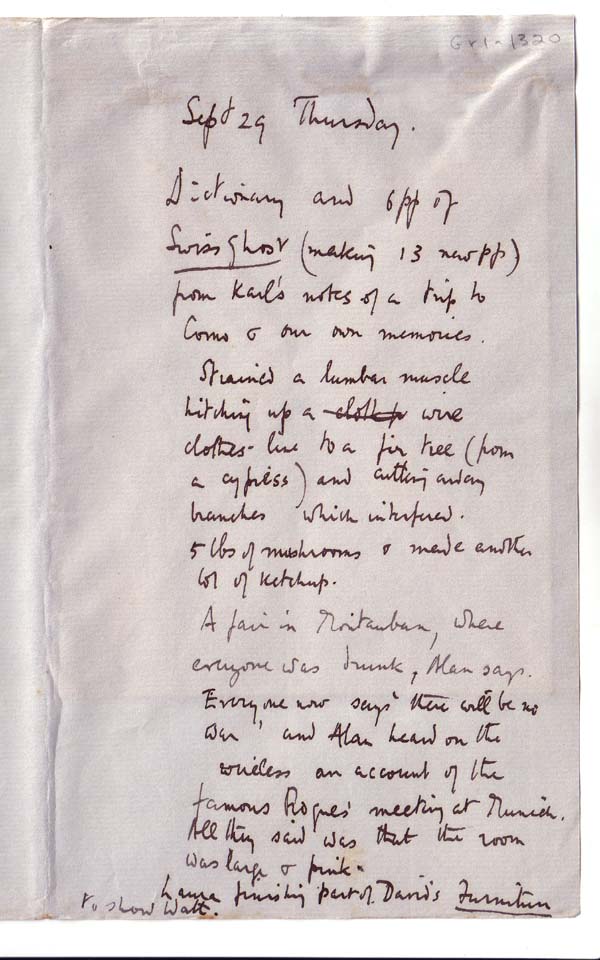 Gr.1-1320
Sept 29 Thursday.
Dictionary and 6pp of
Swiss Ghost (making 13 new pp)
from Karl's notes of a trip to
Como & our own memories.
Strained a lumbar muscle
hitching up a cloth wire
clothes-line to a fir tree (from
a cypress) and cutting away
branches which interfered.
5 lbs of mushrooms & made another
lot of ketchup.
A fair in Montauban, where
everyone was drunk, Alan says.
Everyone now says 'there will be no
war' and Alan heard on the
wireless an account of the
famous Rogues' meeting at Munich.
All they said was that the room
was large & pink.
Laura finishing part of David's Furniture
to show Watt.